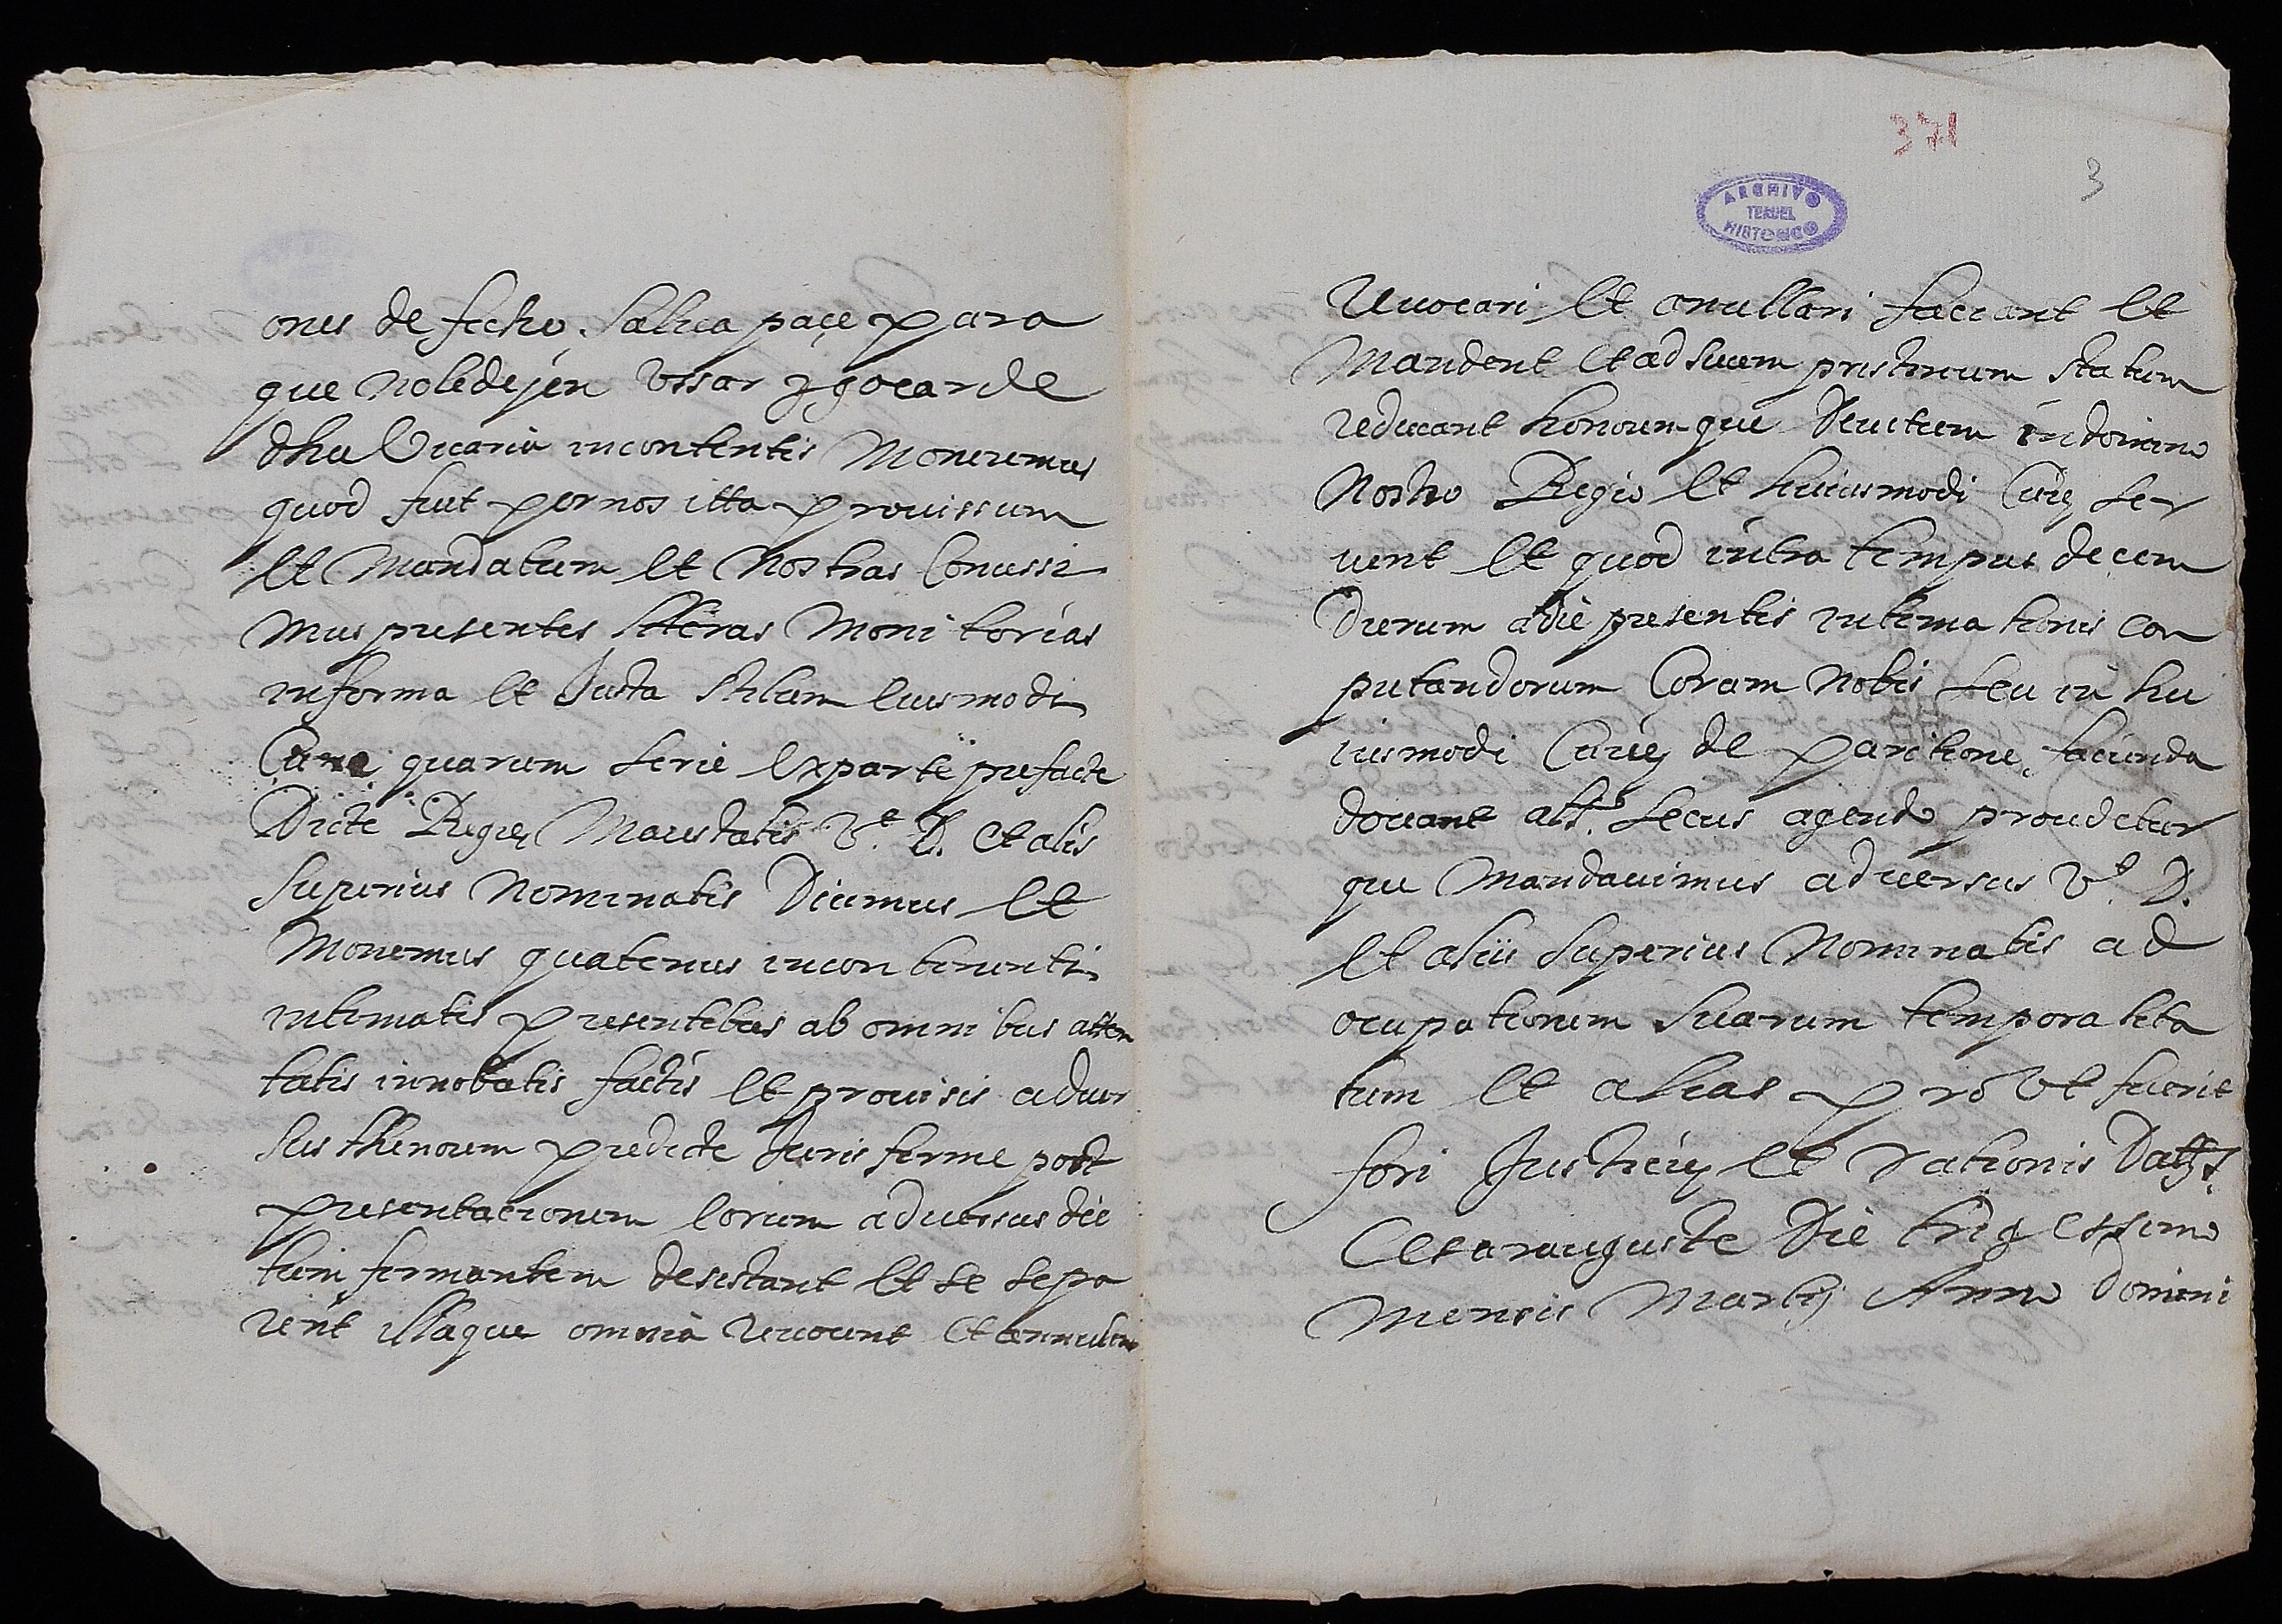 ones de fecho salua paçe para
que noledejen vssar y goçar de
dha Vicaria incontentis Moneremus
quod fuit per nos itta prouissum
et Mandatum et Nostras Comissi
mus presentes litteras Monitorias
informa et Justa stilum eiusmodi
quarum serie exparte prefacte
Dicte Regie Maiestatis Vᵉ. D. et aliis
superius Nominatis Dicimus et
Monemus quatenus incontenenti
intimatis presentibus ab omnibus atten
tatis innobatis factis et prouisis aduer
sus thenorem predicte Juris firme post
presentacionem eorum aduersus dic
tum firmantem desistant et se sepa
rent illaque omnia reuocent et annulen
371
3
ARCHIVO
TERUEL
HISTORICO
reuocari et anullari faciant et
Mandent et ad suum pristinum statum
reducant honoremque deuitum indomino
Nostro Regio et huiusmodi Curie ser
uent et quod intra tempus decem
Dierum adie presentis intimationis con
putandorum Coram Nobis seu in hu
iusmodi Curie de paritione facienda
doceant alt.ͬ secus agendo prouidebitur
que Mandauimus aduersus Vᵉ. D.
et aliis superius Nominatis ad
ocupationem suarum tempora lita
tum et alias pro vt fuerit
fori Justicie et rationis Datis
Cesarauguste Die trigessimo
Mensis Martij Anno Domini